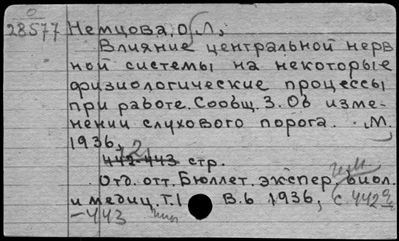 28577 Немцова, О.Л.,
Влияние центральной нерв
ной системы на некоторые
физиологические процессы
при работе. Сообщ. 3. Об изме-
нении слухового порога. М.
1936,
442-443 стр.
Отд. отт. Бюллет. экспер. биол.
и медиц. Т.I В.6 1936, с. 442
-443